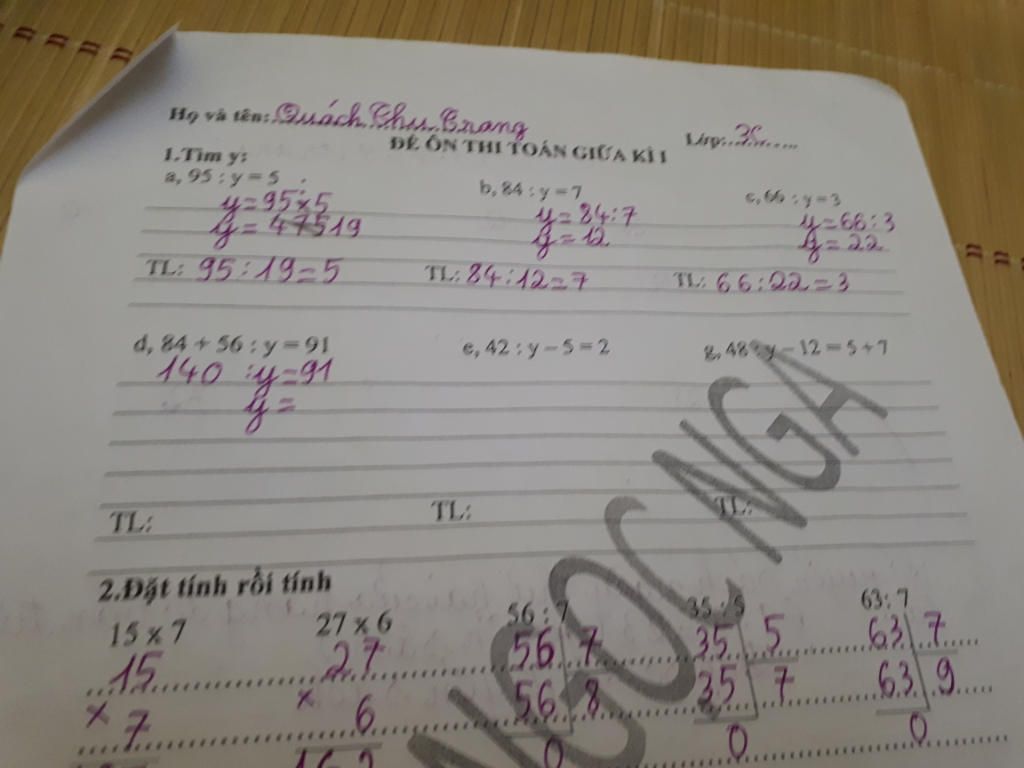 Họ và tên: Quách Thu Trang
Lớp: 3C
ĐỀ ÔN THI TOÁN GIỮA KÌ I
1.Tìm y:
a, 95 : y = 5 b, 84 : y = 7 c, 66 : y = 3
y = 95 : 5 y = 84 : 7 y = 66 : 3
y = 475 19 y = 12 y = 22
TL: 95 : 19 = 5 TL: 84 : 12 = 7 TL: 66 : 22 = 3
d, 84 + 56 : y = 91 e, 42 : y – 5 = 2 g, 48 : y – 12 = 5 + 7
140 : y = 91
y =
TL: TL: TL:
NGOC NGA
2.Đặt tính rồi tính
15 x 7 27 x 6 56 : 7 35 : 5 63: 7
15 27 56 7 35 5 63 7
x 7 x 6 56 8 35 7 63 9
162 0 0 0